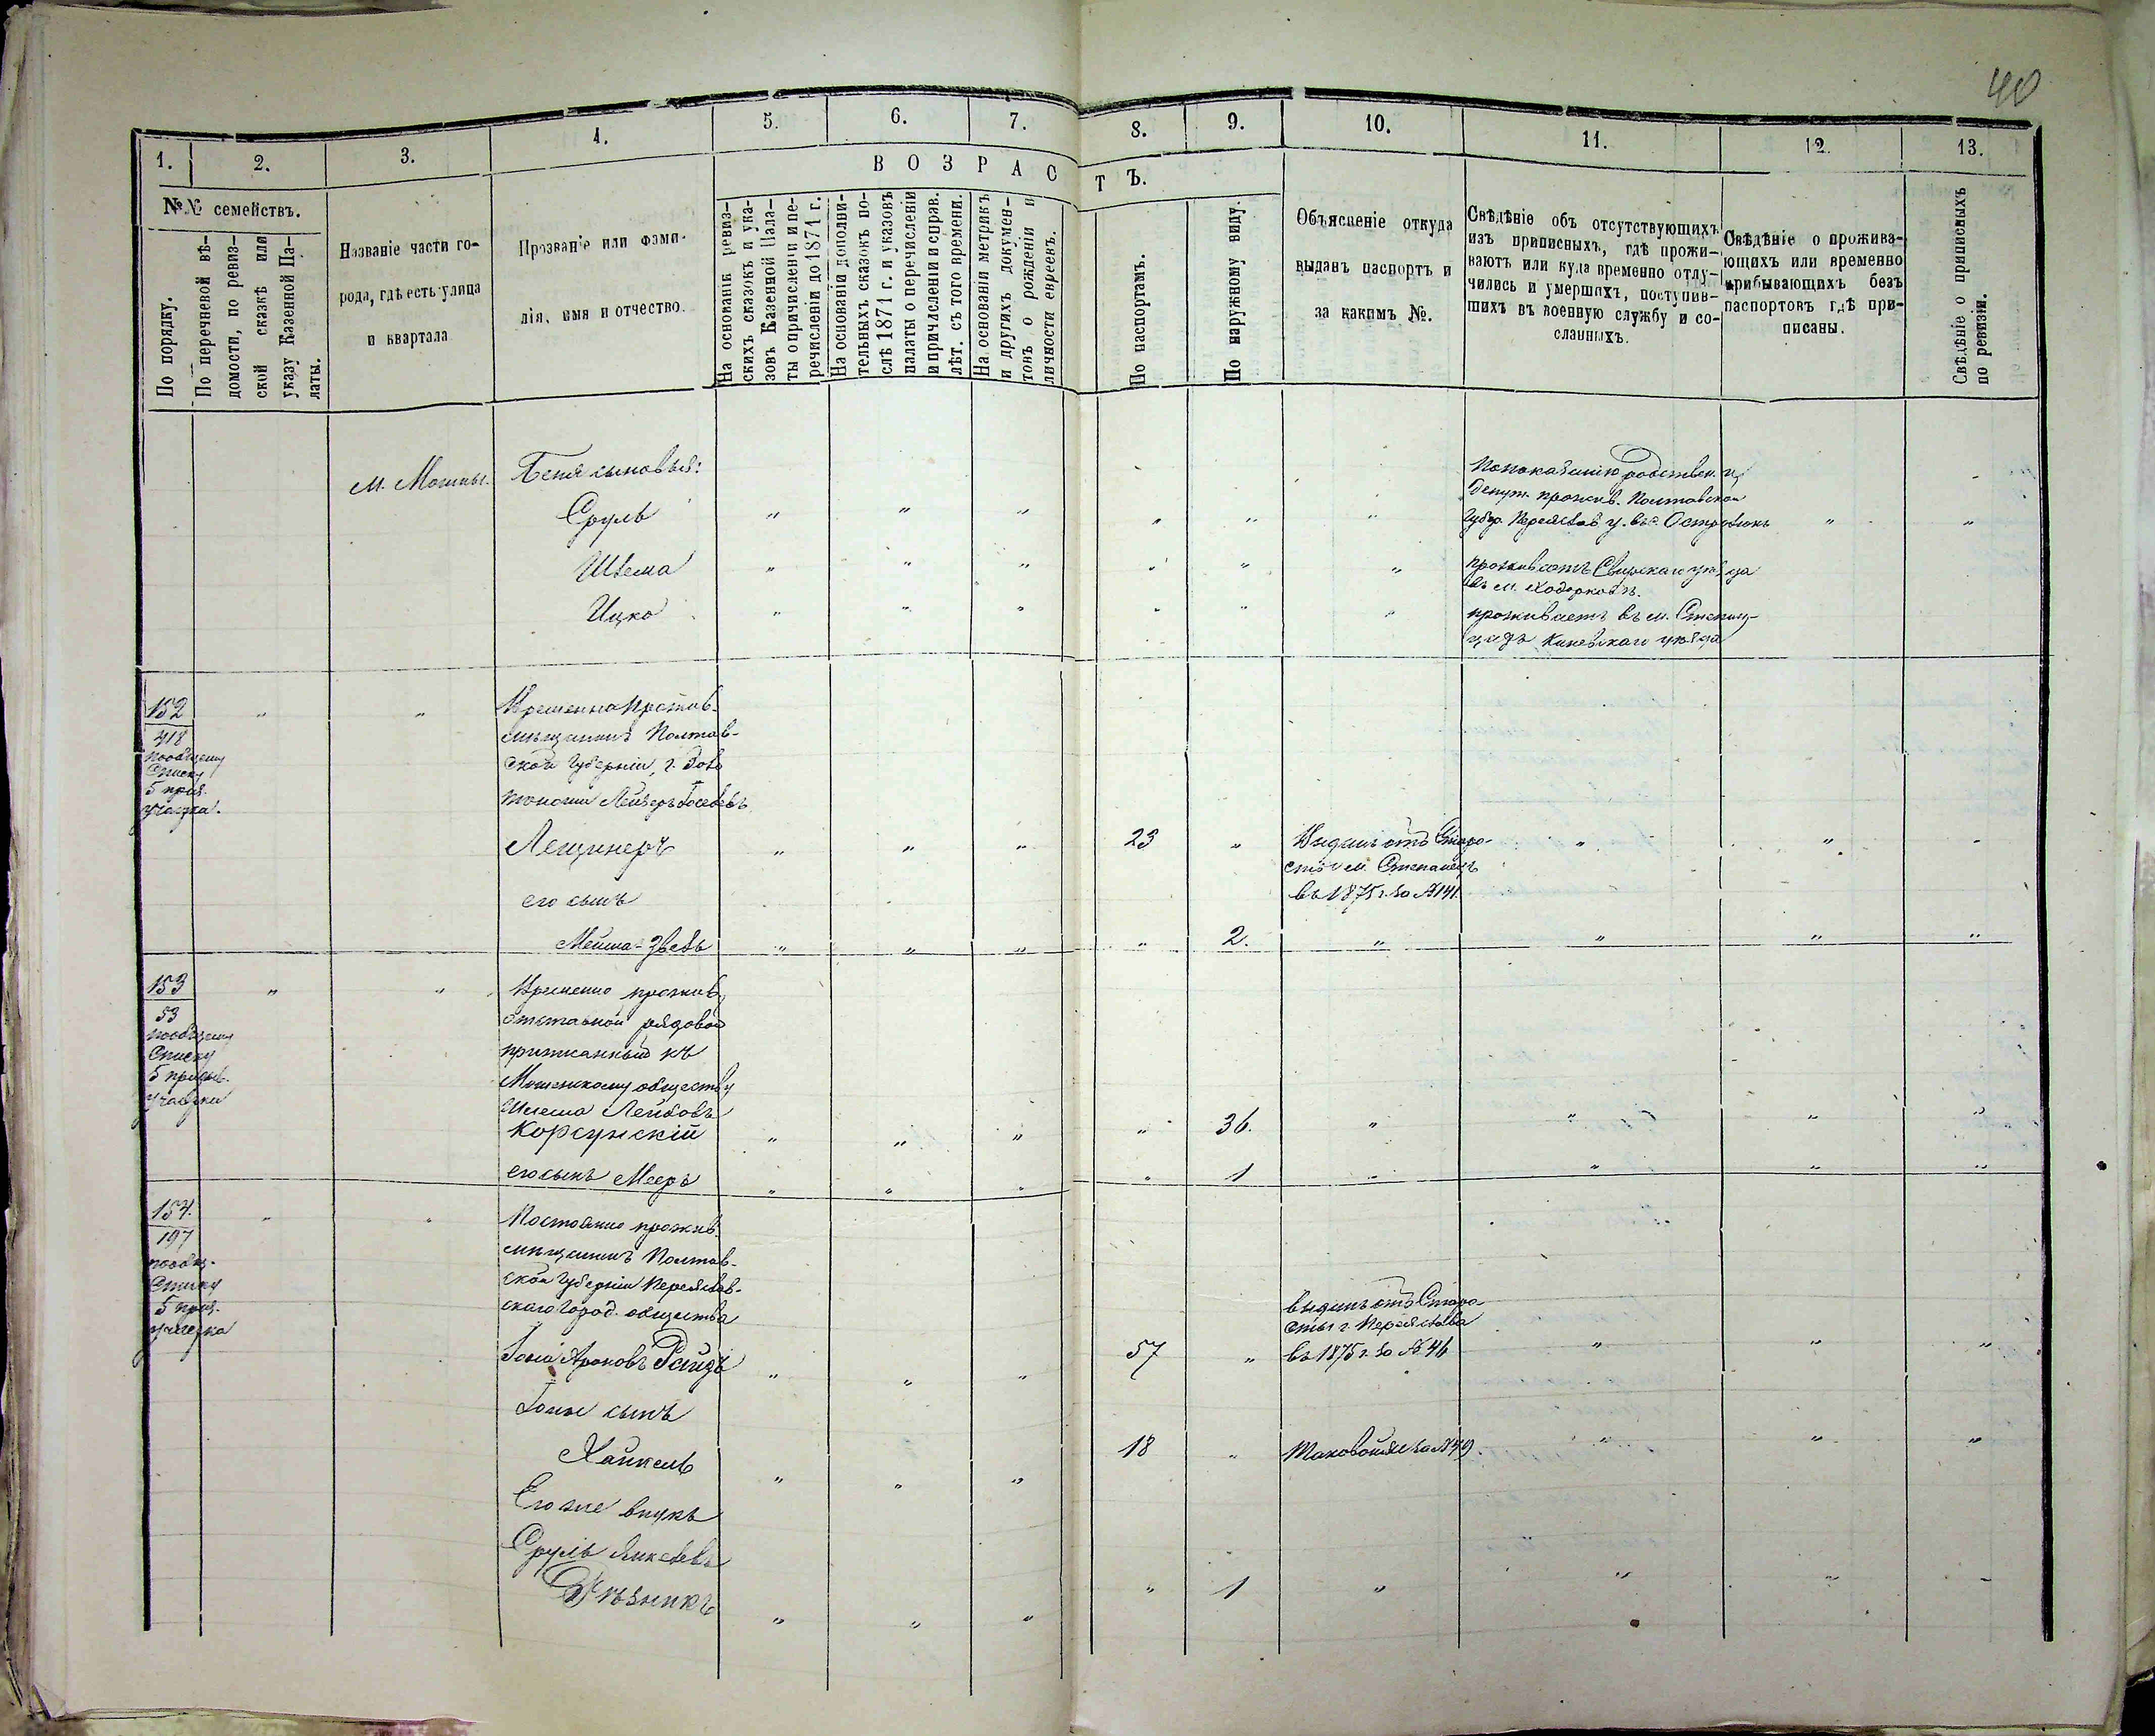 40
1.
2.
3.
4.
5.
6.
7.
8.
9.
10.
11.
12.
13.
№№ семействъ.
ВОЗРАСТЪ.
По порядку.
По перечневой вѣ-
домости, по ревиз-
ской сказкѣ или
указу Казенной Па-
латы.
Названіе части го-
рода, гдѣ есть улица
и квартала
Прозваніе или фами-
лія, имя и отчество.
На основаніи ревиз-
скихъ сказокъ и ука-
зовъ Казенной Пала-
ты о причисленіи и пе-
речисленіи до 1871 г.
На основаніи дополни-
тельныхъ сказокъ по-
слѣ 1871 г. и указовъ
палаты о перечисленіи
и причисленіи и справ.
лѣт. съ того времени.
На основаніи метрикъ
и другихъ докумен-
товъ о рожденіи и
личности евреевъ.
По паспортамъ.
По наружному виду.
Объясненіе откуда
выданъ паспортъ и
за какимъ №.
Свѣдѣніе объ отсутствующихъ
изъ приписныхъ, гдѣ прожи-
ваютъ или куда временно отлу-
чились и умершихъ, поступив-
шихъ въ военную службу и со-
сланныхъ.
Свѣдѣніе о прожива-
ющихъ или временно
прибывающихъ безъ
паспортовъ гдѣ при-
писаны.
Свѣдѣніе о приписныхъ
по ревизіи.
м. Мошны.
Беня сыновья:
Сруль " " " " " "
По показанію родствен. и
депут. прожив. Полтавской
Губер. Переяслав у. въ с. " "
Шлема " " " " " "
проживаетъ Сквирскаго уѣзда
въ м. Ходорковѣ.
Ицко " " " " " "
проживаетъ въ м. Степан-
цахъ Каневскаго уѣзда
152 " "
418
по общему
Списку
5 приз.
участка.
Временно прожив.
мѣщанинъ Полтав-
ской Губерніи, г. Золо
тоноши Лейзеръ
Лещинеръ " " " 23 "
Выданъ отъ Старо-
сты м. Степанецъ
въ 1875 г. за №141.
" " "
его сынъ
" " " " 2. " " " "
153 " "
53
по общему
Списку
5 призыв.
участка
Временно прожив.
отставной рядовой
приписанный къ
Мошенскому обществу
Шлема Лейбовъ
Корсунскій " " " " 36. " " " "
его сынъ Мееръ " " " " 1 " " " "
154. " "
197
по общ.
Списку
5 приз.
участка
Постоянно прожив.
мѣщанинъ Полтав-
ской Губерніи Переяслав-
скаго город. общества
Ароновъ " " " 57 "
выданъ отъ Старо-
сты г. Переяслава
въ 1875 г. за №46
" " "
сынъ
Хайкель " " " 18 "
Таковой же за №49.
" " "
Его же внукъ
Сруль Янкелевъ
Рѣзникъ " " " " 1 " " " "